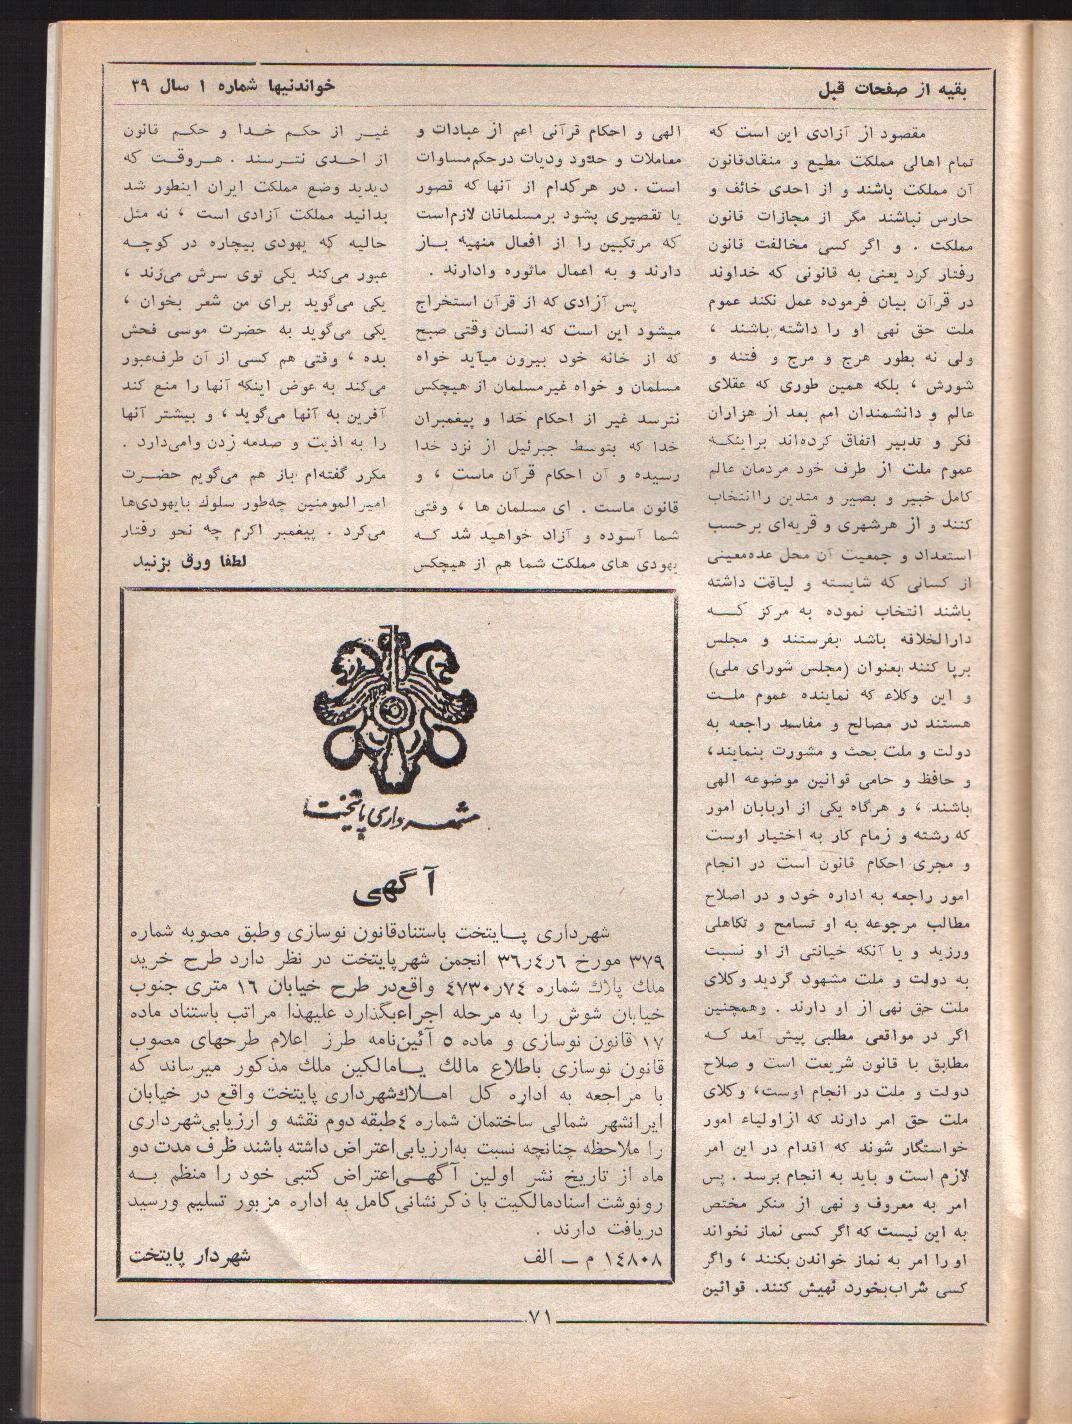 بقیه از صفحات قبل
خواندنیها شماره ۱ سال ۳۹
مقصود از آزادی این است که
تمام اهالی مملکت مطیع و منقادقانون
آن مملکت باشند و از احدی خائف و
حارس نباشند مگر از مجازات قانون
مملکت . و اگر کسی مخالفت قانون
رفتار کرد یعنی به قانونی که خداوند
در قرآن بیان فرموده عمل نکند عموم
ملت حق نهی او را داشته باشند ،
ولی نه بطور هرج و مرج و فتنه و
شورش ، بلکه همین طوری که عقلای
عالم و دانشمندان امم بعد از هزاران
فکر و تدبیر اتفاق کرده‌اند براینکه
عموم ملت از طرف خود مردمان عالم
کامل خبیر و بصیر و متدین راانتخاب
کنند و از هرشهری و قریه‌ای برحسب
استعداد و جمعیت آن محل عده‌معینی
از کسانی که شایسته و لیاقت داشته
باشند انتخاب نموده به مرکز که
دارالخلافه باشد بفرستند و مجلس
برپا کنند بعنوان (مجلس شورای ملی)
و این وکلاء که نماینده عموم ملت
هستند در مصالح و مفاسد راجعه به
دولت و ملت بحث و مشورت بنمایند،
و حافظ و حامی قوانین موضوعه الهی
باشند ، و هرگاه یکی از اربابان امور
که رشته و زمام کار به اختیار اوست
و مجری احکام قانون است در انجام
امور راجعه به اداره خود و در اصلاح
مطالب مرجوعه به او تسامح و تکاهلی
ورزید و یا آنکه خیانتی از او نسبت
به دولت و ملت مشهود گردید وکلای
ملت حق نهی از او دارند . وهمچنین
اگر در مواقعی مطلبی پیش آمد که
مطابق با قانون شریعت است و صلاح
دولت و ملت در انجام اوست، وکلای
ملت حق امر دارند که ازاولیاء امور
خواستگار شوند که اقدام در این امر
لازم است و باید به انجام برسد . پس
امر به معروف و نهی از منکر مختص
به این نیست که اگر کسی نماز نخواند
او را امر به نماز خواندن بکنند ، واگر
کسی شراب‌بخورد نهیش کنند. قوانین
الهی و احکام قرآنی اعم از عبادات و
معاملات و حدود ودیات درحکم‌مساوات
است . در هرکدام از آنها که قصور
یا تقصیری بشود برمسلمانان لازم‌است
که مرتکبین را از افعال منهیه باز
دارند و به اعمال ماثوره وادارند .
پس آزادی که از قرآن استخراج
میشود این است که انسان وقتی صبح
که از خانه خود بیرون میآید خواه
مسلمان و خواه غیرمسلمان از هیچکس
نترسد غیر از احکام خدا و پیغمبران
خدا که بتوسط جبرئیل از نزد خدا
رسیده و آن احکام قرآن ماست ، و
قانون ماست . ای مسلمان ها ، وقتی
شما آسوده و آزاد خواهید شد که
یهودی های مملکت شما هم از هیچکس
غیر از حکم خدا و حکم قانون
از احدی نترسند . هروقت که
دیدید وضع مملکت ایران اینطور شد
بدانید مملکت آزادی است ، نه مثل
حالیه که یهودی بیچاره در کوچه
عبور می‌کند یکی توی سرش می‌زند ،
یکی می‌گوید برای من شعر بخوان ،
یکی می‌گوید به حضرت موسی فحش
بده ، وقتی هم کسی از آن طرف‌عبور
می‌کند به عوض اینکه آنها را منع کند
آفرین به آنها می‌گوید ، و بیشتر آنها
را به اذیت و صدمه زدن وامی‌دارد .
مکرر گفته‌ام باز هم می‌گویم حضرت
امیرالمومنین چه‌طور سلوك بایهودی‌ها
می‌کرد . پیغمبر اکرم چه نحو رفتار
لطفا ورق بزنید
شهرداری پایتخت
آگهی
شهرداری پایتخت باستنادقانون نوسازی وطبق مصوبه شماره
۳۷۹ مورخ ۳۶ر۴ر۶ انجمن شهرپایتخت در نظر دارد طرح خرید
ملك پلاك شماره ۴۷۳۰ر۷۴ واقع‌در طرح خیابان ۱۶ متری جنوب
خیابان شوش را به مرحله اجراءبگذارد علیهذا مراتب باستناد ماده
۱۷ قانون نوسازی و ماده ۵ آئین‌نامه طرز اعلام طرحهای مصوب
قانون نوسازی باطلاع مالك یامالکین ملك مذکور میرساند که
با مراجعه به اداره کل املاك‌شهرداری پایتخت واقع در خیابان
ایرانشهر شمالی ساختمان شماره ۴طبقه دوم نقشه و ارزیابی‌شهرداری
را ملاحظه چنانچه نسبت به‌ارزیابی‌اعتراض داشته باشند ظرف مدت دو
ماه از تاریخ نشر اولین آگهی‌اعتراض کتبی خود را منظم به
رونوشت اسنادمالکیت با ذکرنشانی‌کامل به اداره مزبور تسلیم ورسید
دریافت دارند .
۱۴۸۰۸ م ـ الف
شهردار پایتخت
۷۱